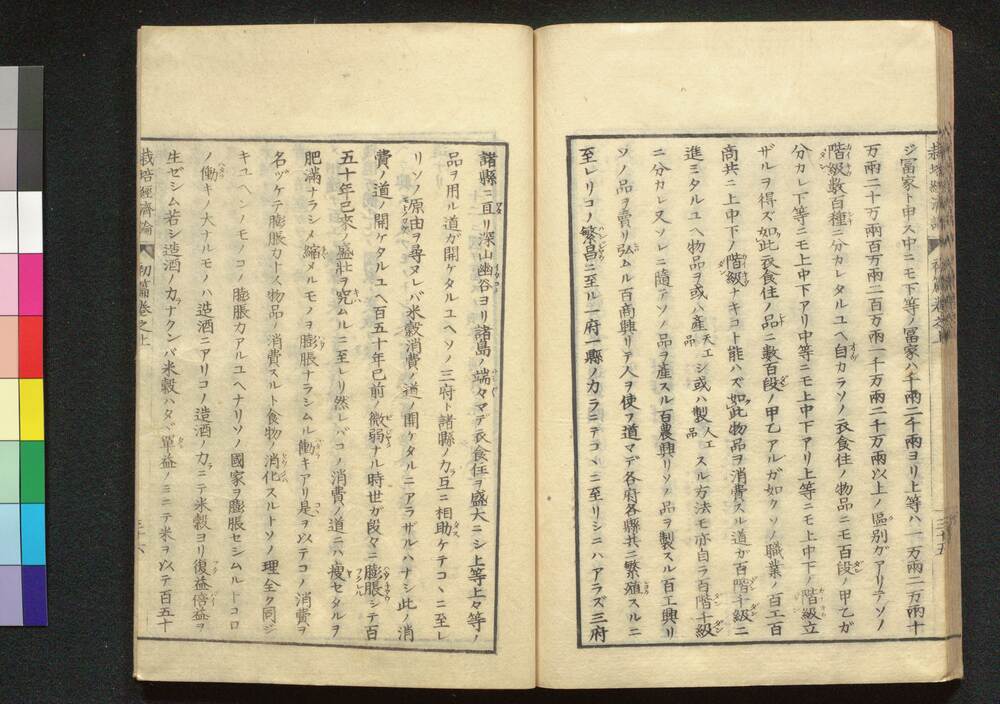 ジ冨家ト申ス中ニモ下等ノ冨家ハ千兩二千兩ヨリ上等ハ一万兩二万兩十
万兩二十万兩百万兩二百万兩一千万兩二千万兩以上ノ區別ガアリテソノ
階級數百種ニ分カレタルユヘ自カラソノ衣食住ノ物品ニモ百段ノ甲乙ガ
分カレ下等ニモ上中下アリ中等ニモ上中下アリ上等ニモ上中下ノ階級立
ザルヲ得ズ如此衣食住ノ品ニ數百段ノ甲乙アルガ如クソノ職業ノ百工百
商共ニ上中下ノ階級ナキコト能ハズ如此物品ヲ消費スル道ガ百階千級ニ
進ミタルユヘ物品ヲ或ハ産天工品シ或ハ製人工品スル方法モ亦自ラ百階千級
ニ分カレ又ソレニ隨テソノ品ヲ産スル百農興リソノ品ヲ製スル百工興リ
ソノ品ヲ賣リ弘ムル百商興リテ人ヲ使フ道マデ各府各縣共ニ繁殖スルニ
至レリコノ繁昌ニ至ル一府一縣ノカラニテコヽニ至リシニハアラズ三府
三十五
諸縣ニ亘リ深山幽谷ヨリ諸島ノ端々マデ衣食住ヲ盛大ニシ上等上々等ノ
品ヲ用ル道ガ開ケタルユヘソノ三府ト諸縣ノ力互ニ相助ケテコヽニ至レ
リソノ原由ヲ尋ヌレバ米穀消費ノ道ノ開ケタルニアラザルハナシ此ノ消
費ノ道ノ開ケタルユヘ百五十年已前ノ微弱ナル時世ガ段々ニ膨脹シテ百
五十年已來ノ盛壯ヲ究ムルニ至レリ然レバコノ消費ノ道ニハ痩セタルヲ
肥滿ナラシメ縮メルモノヲ膨脹ナラシムル働キアリ是ヲ以テコノ消費ヲ
名ヅケテ膨脹力トス物品ノ消費スルト食物ノ消化スルトソノ理全ク同ジ
キユヘンノモノコノ膨脹力アルユヘナリソノ國家ヲ膨脹セシムルトコロ
ノ働キノ大ナルモノハ造酒ニアリコノ造酒ノ力ニテ米穀ヨリ復益倍益ヲ
生ゼシム若シ造酒ノ力ナクンバ米穀ハタヾ單益ノミニテ米ヲ以テ百五十
栽培經濟論 初篇卷之上 三十六